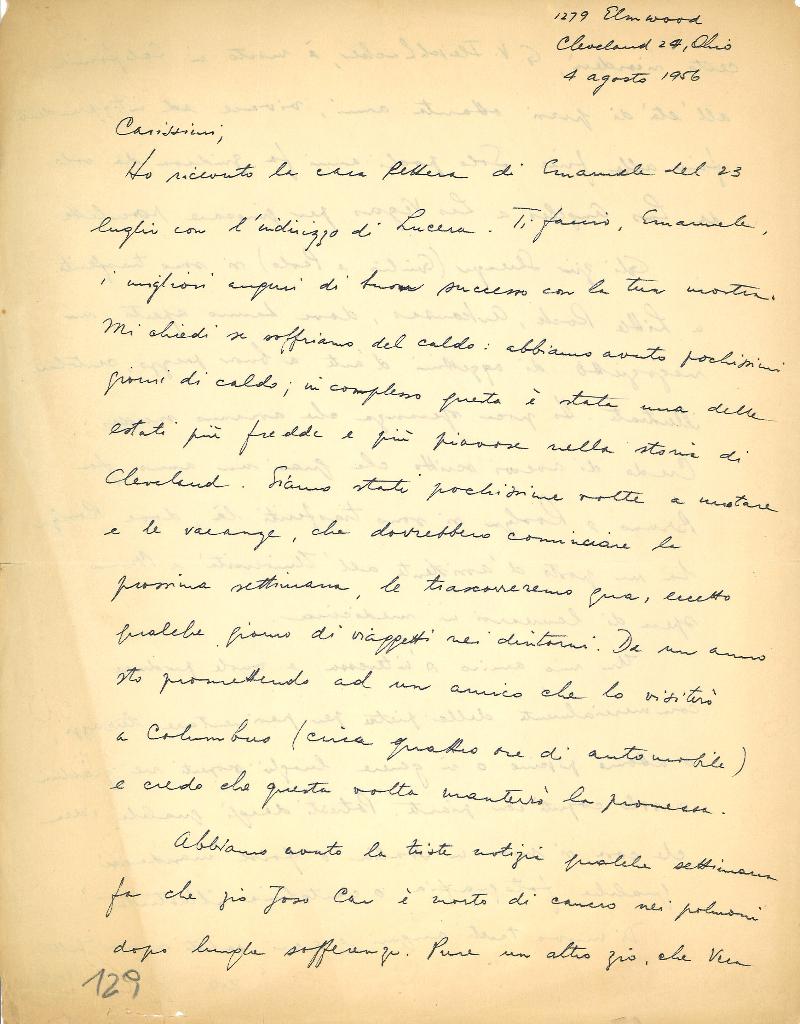 1279 Elmwood
Cleveland 24, Ohio
4 agosto 1956
Carissimi,
Ho ricevuto la cara lettera di Emanuele del 23
luglio con l'indirizzo di Lucera. Ti faccio, Emanuele,
i migliori auguri di buon successo con la tua mostra.
Mi chiedi se soffriamo del caldo: abbiamo avuto pochissimi
giorni di caldo; in complesso questa è stata una delle
estati più fredde e più piovose nella storia di
Cleveland. Siamo stati pochissime volte a nuotare
e le vacanze, che dovrebbero cominciare la
prossima settimana, le trascorreremo qua, eccetto
qualche giorno di viaggetti nei dintorni. Da un anno
sto promettendo ad un amico che lo visiterò
a Columbus (circa quattro ore di automobile)
e credo che questa volta manterrò la promessa.
Abbiamo avuto la triste notizia qualche settimana
fa che zio è morto di cancro nei polmoni
dopo lunghe sofferenze. Pure un altro zio, che Vera
129